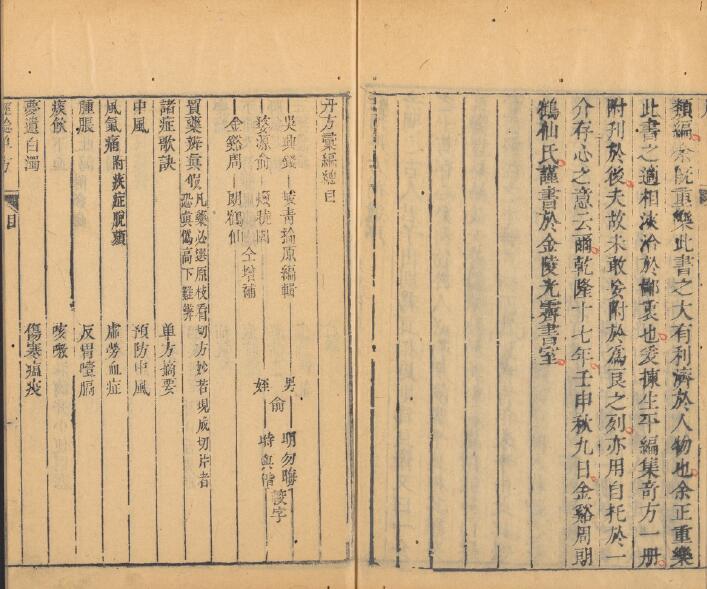 類編宋既重樂此書之大有利濟於人物也余正重樂
此書之適相浹洽於鄙衷也爰揀生平編集奇方一册
附刊於後夫故未敢妄附於爲良之列亦用自托於一
介存心之意云爾乾隆十七年壬申秋九日金谿周朗
鶴仙氏謹書於金陵光霽書室
丹方彙編總目
吳興錢 峻青掄原編輯 男 明勿晦
婺源俞 煥曉園 俞
金谿周 朗鶴仙 仝增補 姪 時與偕 較字
買藥辨眞假 凡藥必選原枝看切方妙若現成切片者恐眞僞高下難辨
諸症歌訣 單方摘要
中風 預防中風
風氣痛 附痰症脫頦 虛勞血症
腫脹 反胃噎膈
痰飲 咳嗽
夢遺白濁 傷寒瘟疫
經驗單方 目